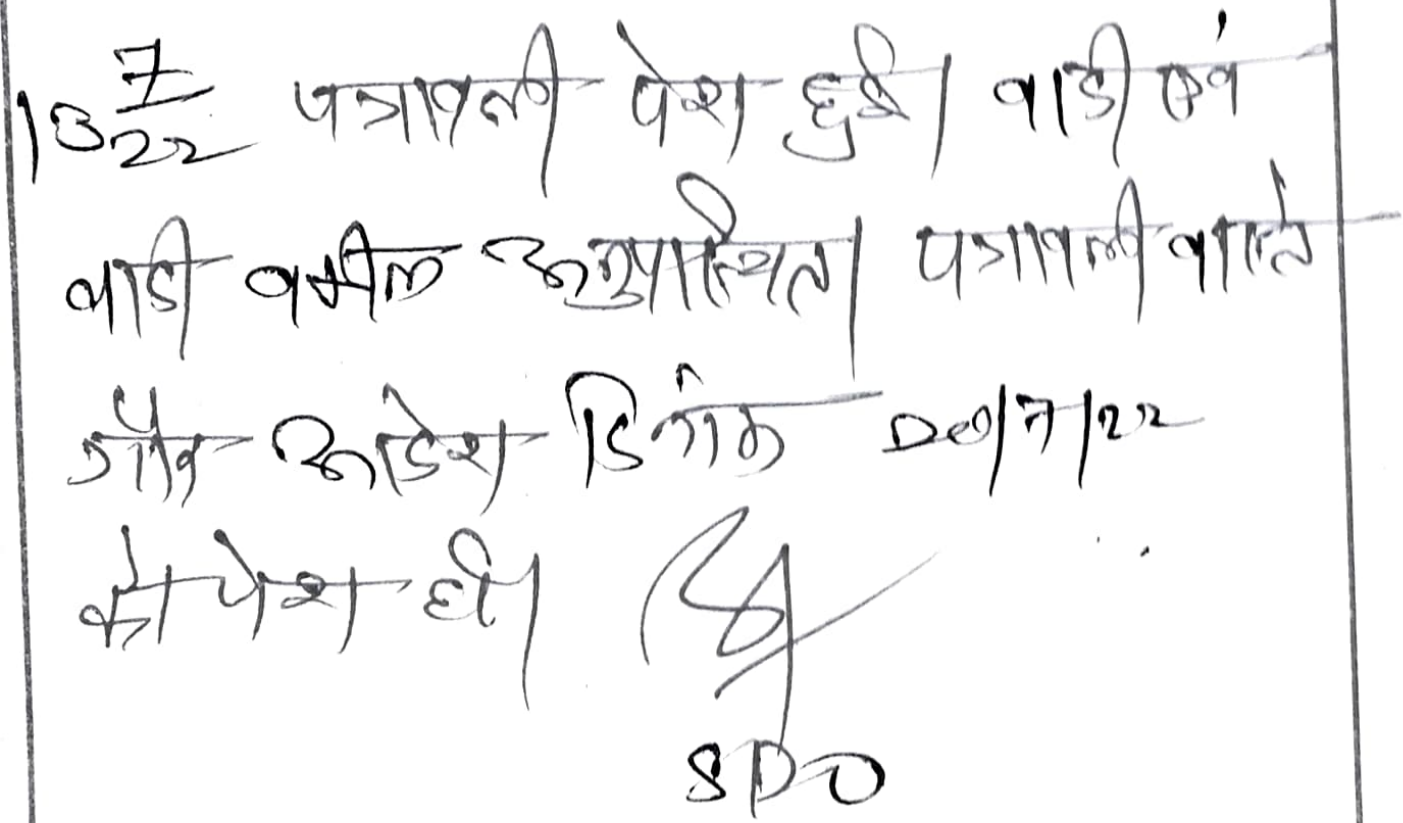 13 7/22 पत्रावली पेश हुई। वादी एवं
वादी वकील अनुपस्थित। पत्रावली वास्ते
गौर आदेश दिनांक 20/7/22
को पेश हो।
SDO